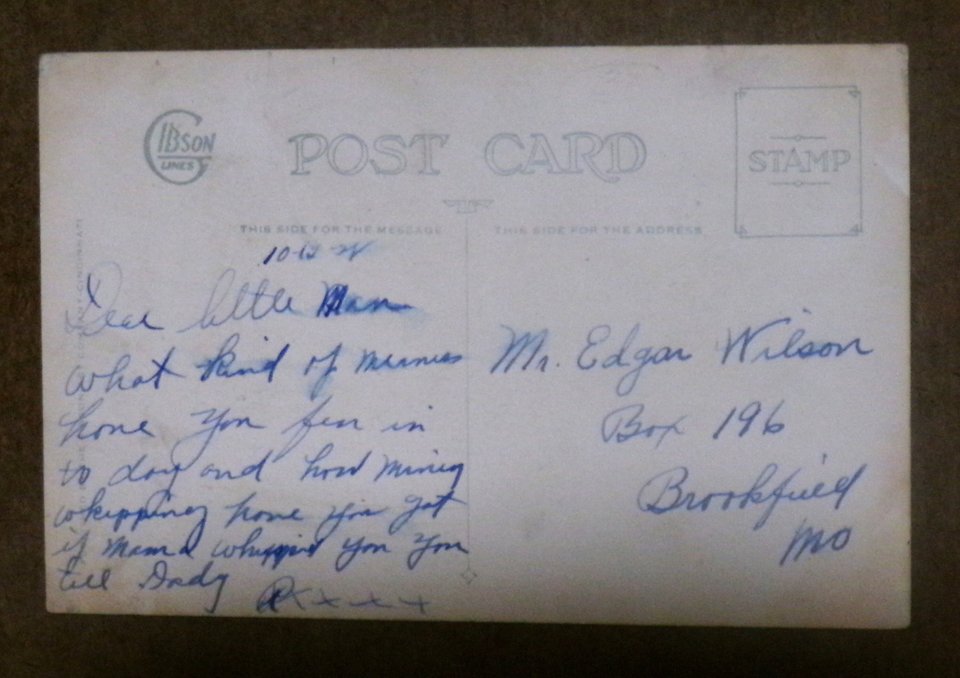 GIBSON
LINES
POST CARD
STAMP
THIS SIDE FOR THE MESSAGE
THIS SIDE FOR THE ADDRESS
Dear little Man
what kind of
have you in
to day and how miney
whipping have you got
if Mama whippid you you
tell Dady
xxxx
Mr. Edgar Wilson
Box 196
Brookfield
Mo